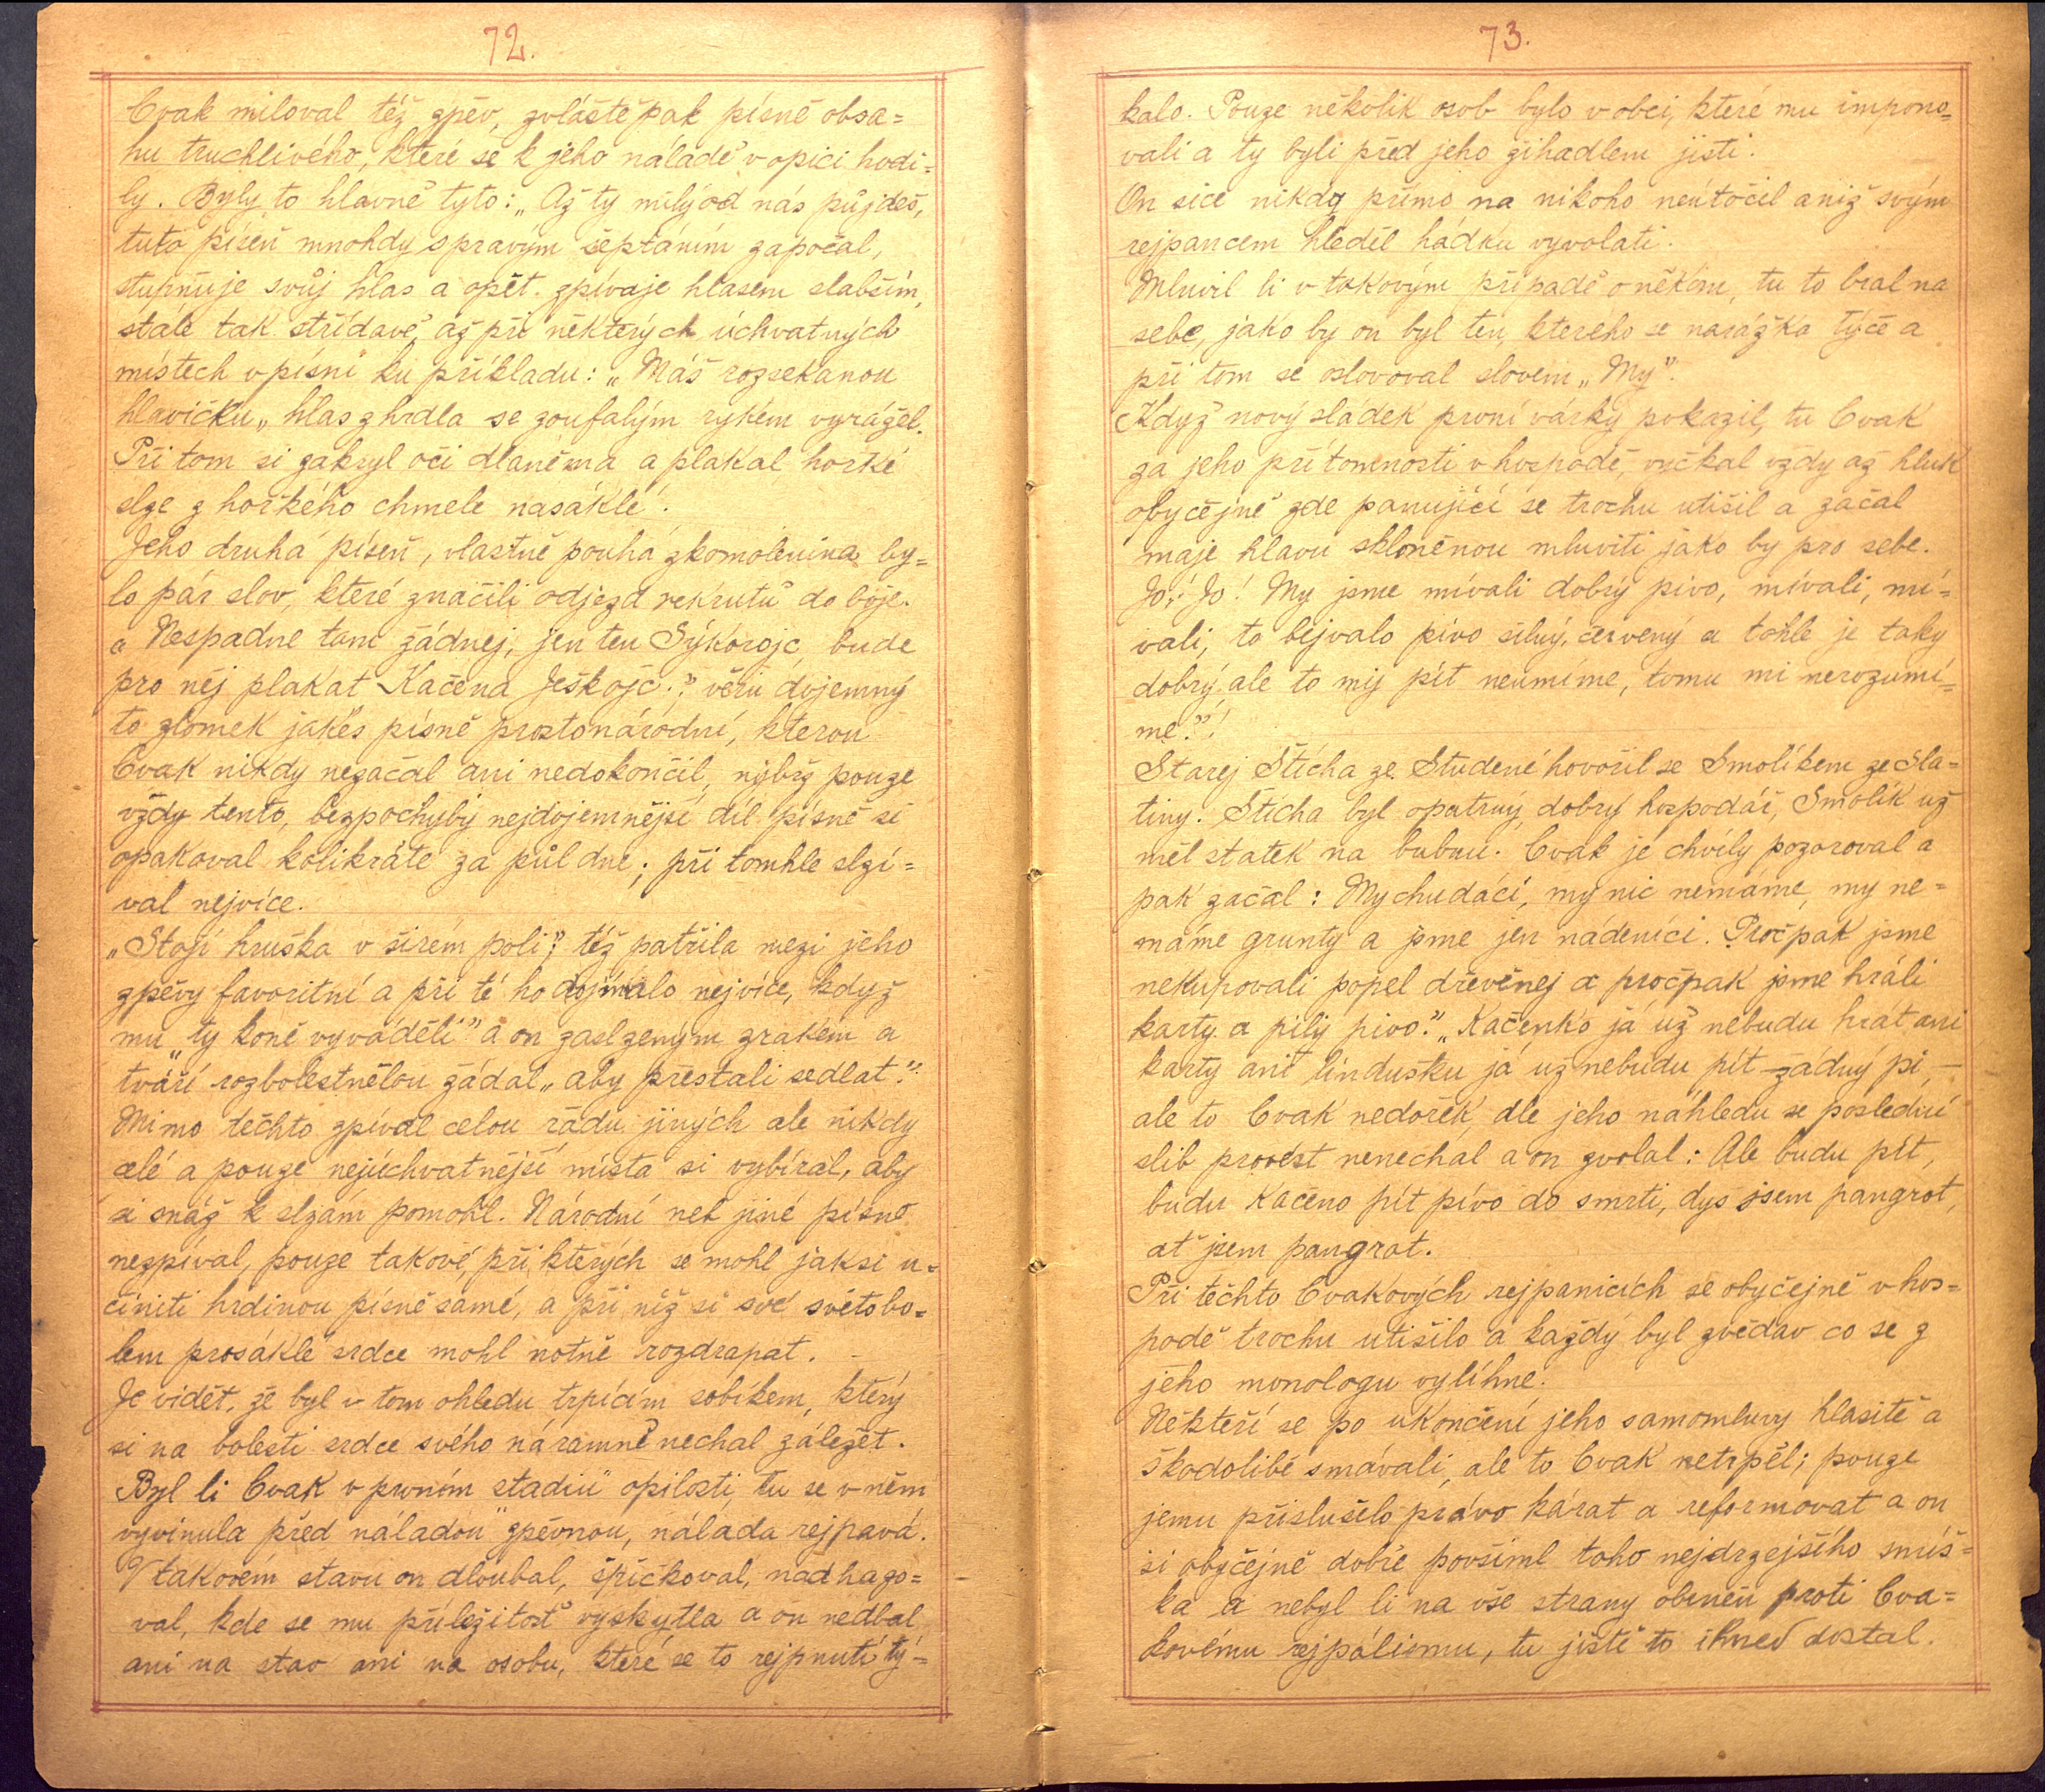 72.
Cvak miloval též zpěv, zvláště pak písně obsa=
hu truchlivého, které se k jeho náladě v opici hodi=
ly. Byly to hlavně tyto: „Až ty milý od nás půjdeš,
tuto píseň mnohdy s pravým šeptáním započal,
stupňuje svůj hlas a opět zpívaje hlasem slabším,
stále tak střídavě, až při některých úchvatných
místech v písni ku příkladu: „Máš rozsekanou
hlavičku„ hlas z hrdla se zoufalým rykem vyrážel.
Při tom si zakryl oči dlaněma a plakal horké
slze z hořkého chmele nasáklé.
Jeho druhá píseň, vlastně pouhá zkomolenina by=
lo pár slov, které značili odjezd rekrutů do boje.
„Nespadne tam žádnej, jen ten Sýkorojc, bude
pro něj plakat Kačena Ješkojc.” věru dojemný
to zlomek jakés písně prostonárodní, kterou
Cvak nikdy nezačal ani nedokončil, nýbrž pouze
vždy tento, bezpochyby nejdojemnější díl písně si
opakoval kolikráte za půl dne; při tomhle slzí=
val nejvíce.
„Stojí hruška v širém poli”, též patřila mezi jeho
zpěvy favoritní a při té ho dojímalo nejvíce, když
mu „ty koně vyváděli” a on zaslzeným zrakem a
tváří rozbolestnělou žádal „aby přestali sedlat”.
Mimo těchto zpíval celou řadu jiných ale nikdy
celé a pouze nejúchvatnější místa si vybíral, aby
si snáž k slzám pomohl. Národní neb jiné písně
nezpíval, pouze takové, při kterých se mohl jaksi u=
činiti hrdinou písně samé, a při níž si své světobo=
lem prosáklé srdce mohl notně rozdrapat.
Je vidět, že byl v tom ohledu trpícím sobíkem, který
si na bolesti srdce svého náramně nechal záležet.
Byl li Cvak v prvním stadiu opilosti, tu se v něm
vyvinula před náladou zpěvnou, nálada rejpavá.
V takovém stavu on dloubal, špičkoval, nadhazo=
val, kde se mu příležitosť vyskytla a on nedbal
ani na stav ani na osobu, které se to rejpnutí tý=
73.
kalo. Pouze několik osob bylo v obci, které mu impono=
vali a ty byli před jeho žihadlem jisti.
On sice nikdy přímo na nikoho neútočil aniž svým
rejpancem hleděl hádku vyvolati.
Mluvil li v takovým případě o někom, tu to bral na
sebe, jako by on byl ten, kterého se narážka týče a
při tom se oslovoval slovem „My”.
Když nový sládek první várky pokazil, tu Cvak
za jeho přítomnosti v hospodě, vyčkal vždy až hluk
obyčejně zde panující se trochu utišil a začal
maje hlavu skloněnou mluviti jako by pro sebe.
Jo, Jo! My jsme mívali dobrý pivo, mívali, mí=
vali, to bejvalo pivo silný, červený a tohle je taky
dobrý, ale to my pít neumíme, tomu mi nerozumí=
me”!
Starej Štícha ze Studené hovořil se Smolíkem ze Sla=
tiny. Štícha byl opatrný, dobrý hospodář, Smolík už
měl statek na bubnu. Cvak je chvíly pozoroval a
pak začal: My chudáci, my nic nemáme, my ne=
máme grunty a jsme jen nádeníci. Pročpak jsme
nekupovali popel dřevěnej a pročpak jsme hráli
karty a pily pivo.” „Kačenko já už nebudu hrát ani
karty ani lindušku já už nebudu pít žádný pi,—
ale to Cvak nedořek, dle jeho náhledu se poslední
slib provést nenechal a on zvolal: Ale budu pít,
budu Kačeno pít pivo do smrti, dyš jsem pangrot,
ať jsem pangrot.
Při těchto Cvakových rejpanicích se obyčejně v hos=
podě trochu utišilo a každý byl zvědav co se z
jeho monologu vylíhne.
Někteří se po ukončení jeho samomluvy hlasitě a
škodolibě smávali, ale to Cvak netrpěl; pouze
jemu příslušelo právo kárat a reformovat a on
si obyčejně dobře povšiml toho nejdrzejšího smíš=
ka a nebyl li na vše strany obrněn proti Cva=
kovému rejpálismu, tu jistě to ihned dostal.